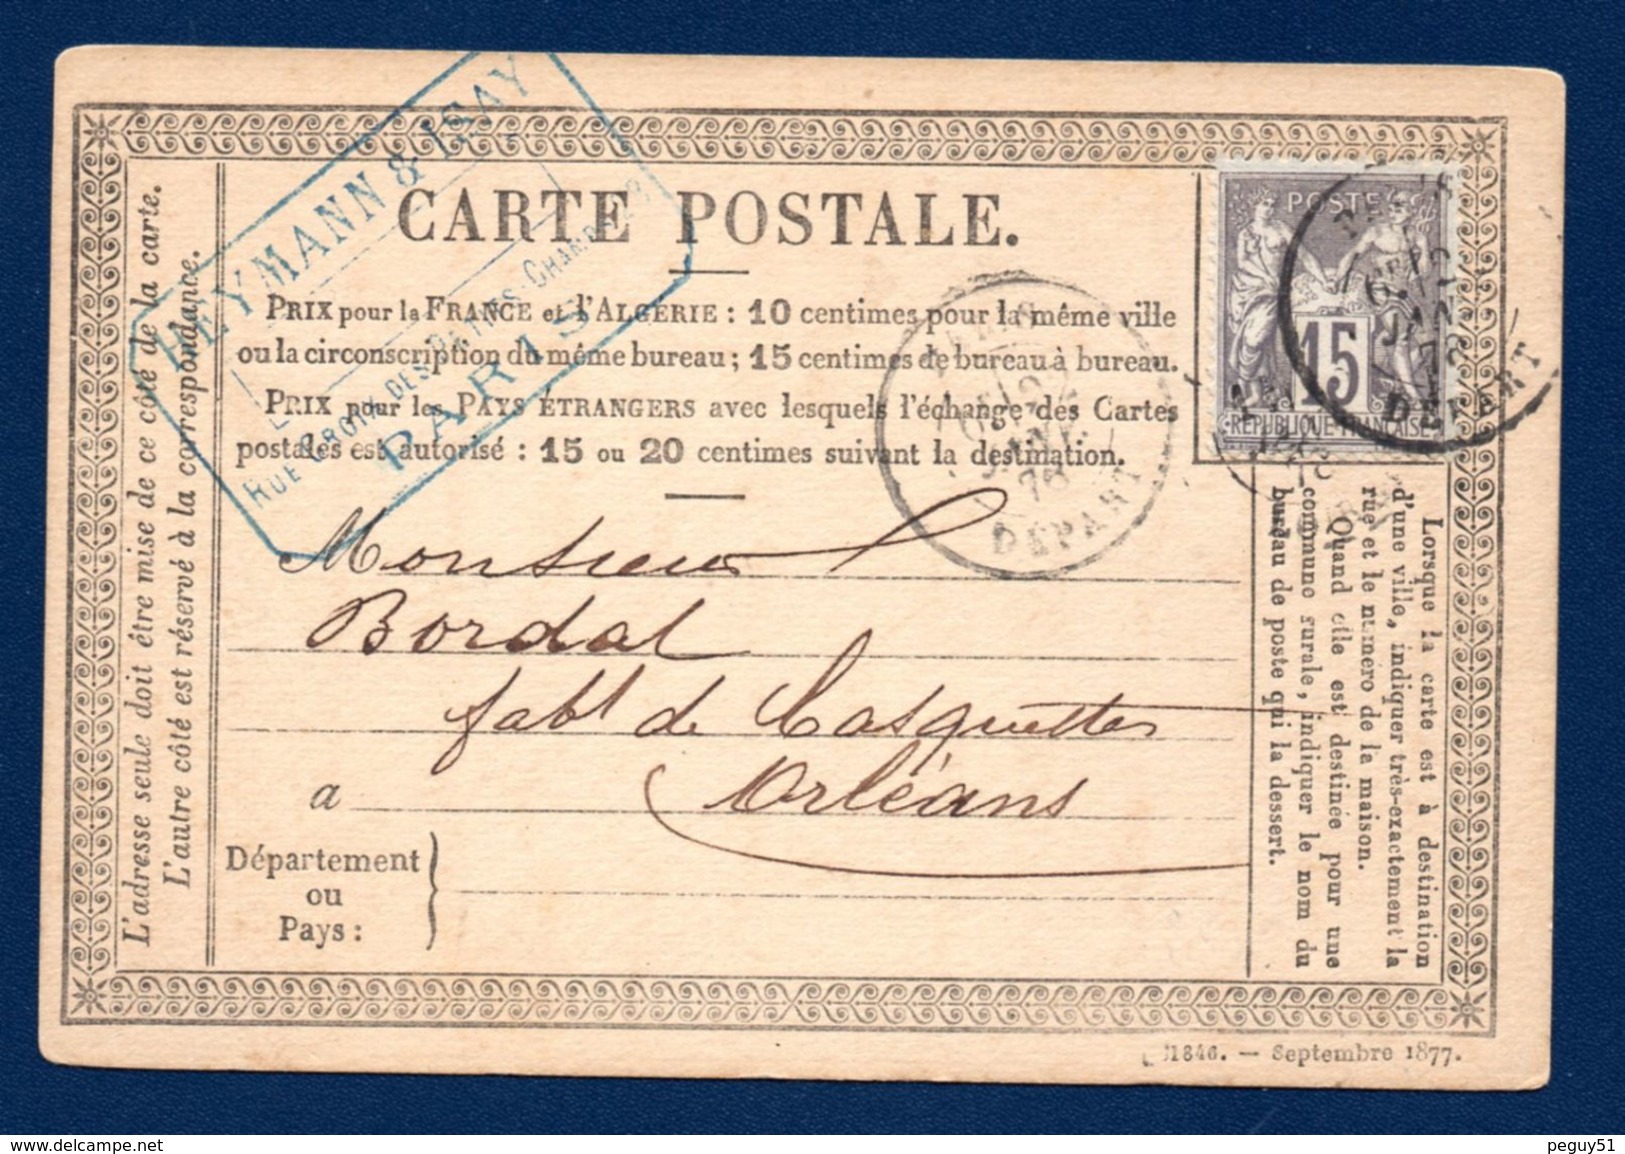 HEYMANN & ISAY
RUE CROIX DES PETITS-CHAMPS
PARIS
CARTE POSTALE.
PRIX pour la FRANCE et l'ALGÉRIE : 10 centimes pour la même ville
ou la circonscription du même bureau ; 15 centimes de bureau à bureau.
PRIX pour les PAYS ÉTRANGERS avec lesquels l'échange des Cartes
postales est autorisé : 15 ou 20 centimes suivant la destination.
POSTE
15
REPUBLIQUE FRANÇAISE
PARIS
JANV
78
DEPART
JANV
78
DEPART
L'adresse seule doit être mise de ce côté de la carte.
L'autre côté est réservé à la correspondance.
Monsieur
Bordat
fabt de Casquettes
a Orléans
Département
ou
Pays :
Lorsque la carte est à destination
d'une ville, indiquer très-exactement la
rue et le numéro de la maison.
Quand elle est destinée pour une
commune rurale, indiquer le nom du
bureau de poste qui la dessert.
1846. — Septembre 1877.
www.delcampe.net
peguy51